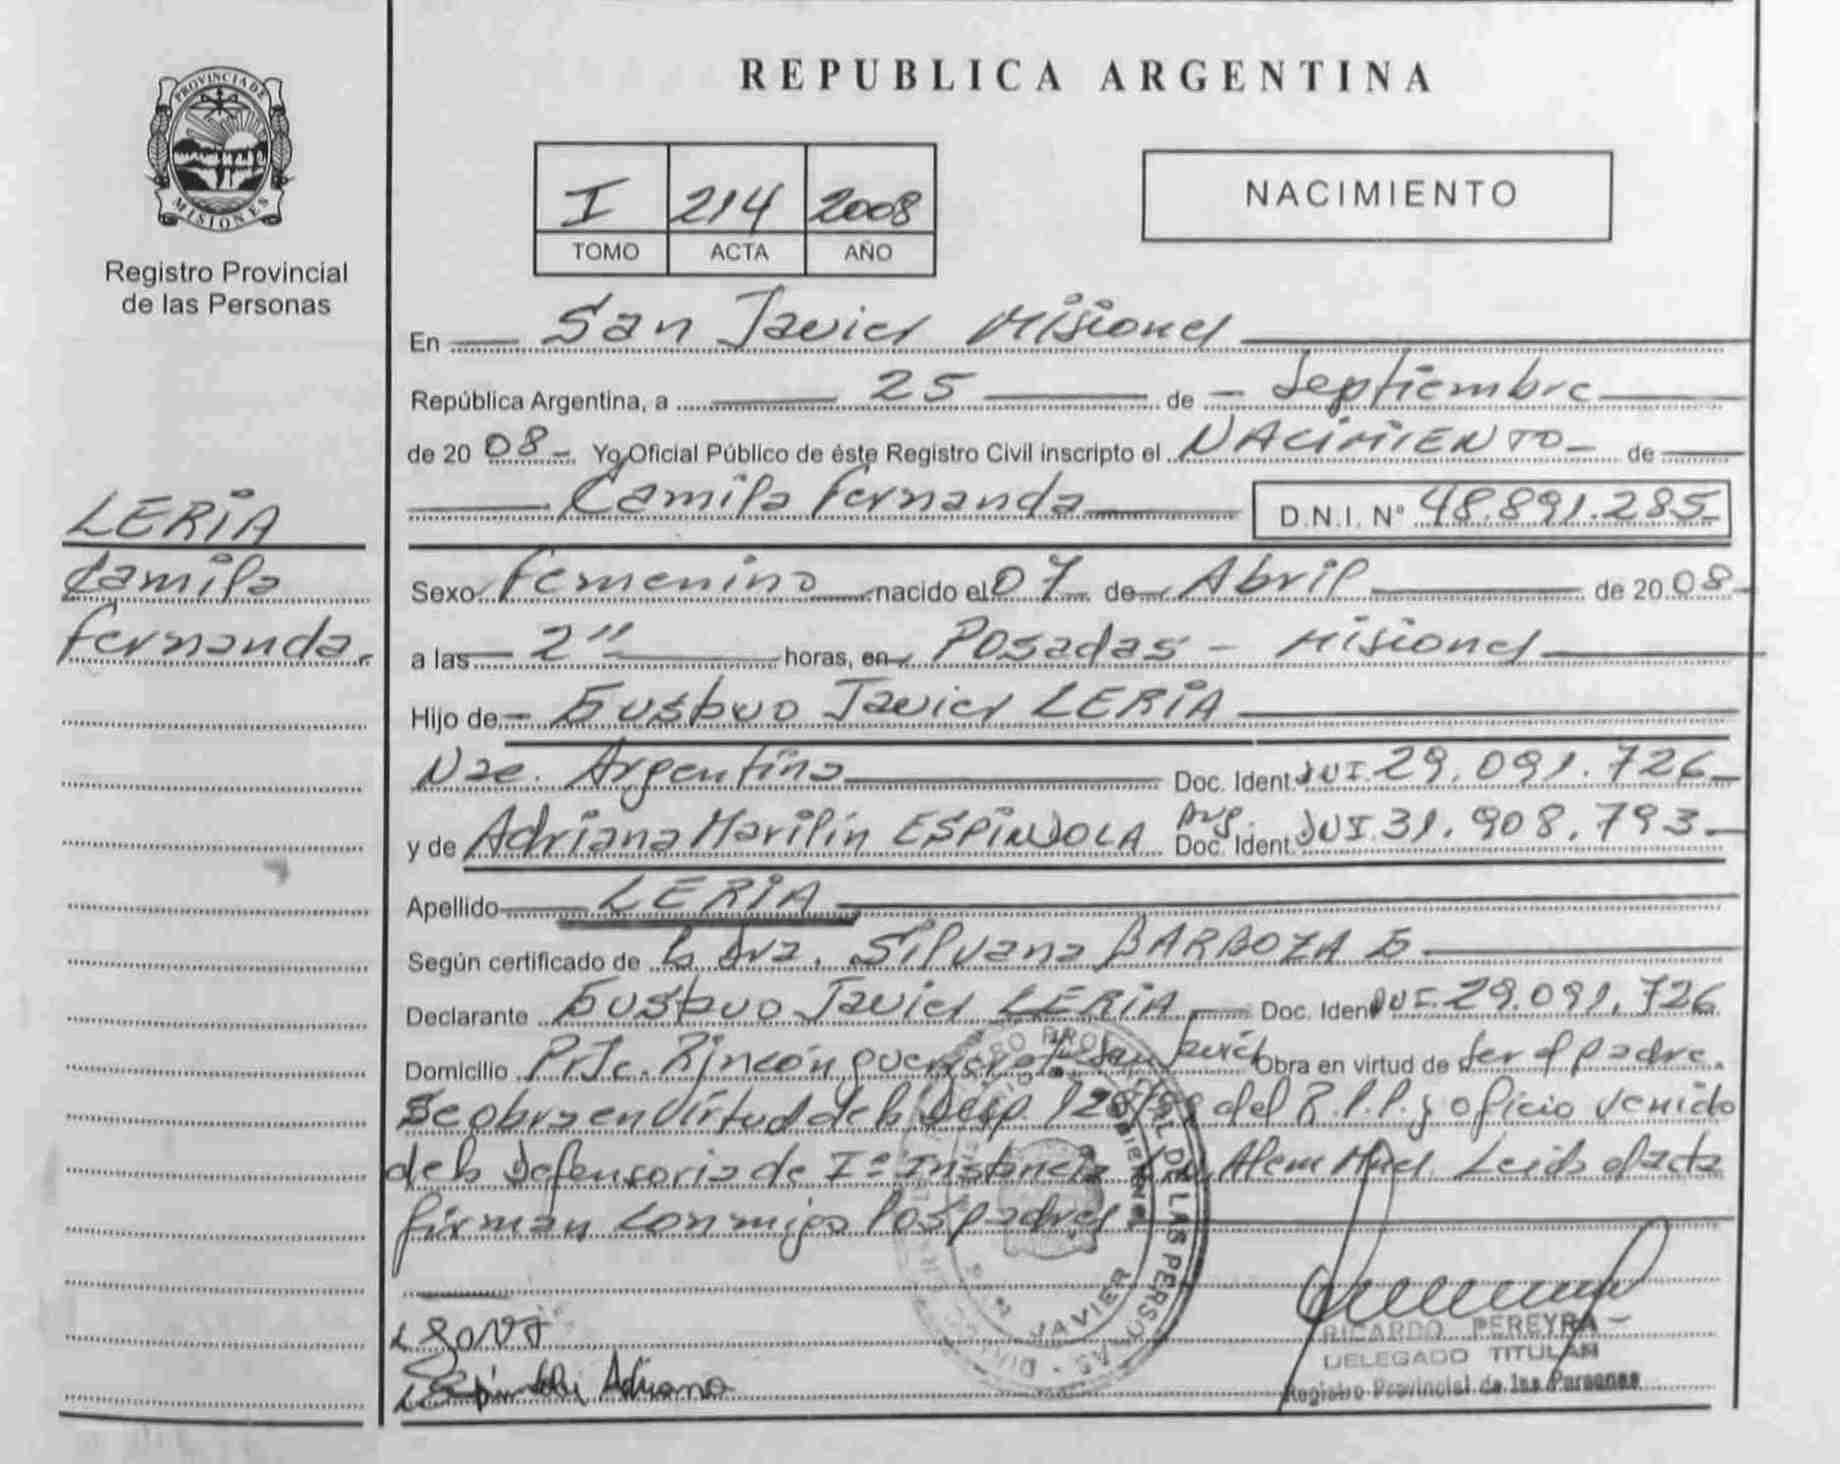 PROVINCIA DE
MISIONES
Registro Provincial
de las Personas
LERIA
Camila
Fernanda.
REPUBLICA ARGENTINA
I 214 2008
TOMO ACTA AÑO
NACIMIENTO
En San Javier Misiones
República Argentina, a 25 de Septiembre
de 20 08 Yo Oficial Público de éste Registro Civil inscripto el NACIMIENTO de
Camila Fernanda D.N.I. Nº 48.891.285
Sexo Femenino nacido el 07 de Abril de 20 08
a las 2 horas, en Posadas - Misiones
Hijo de Gustavo Javier LERIA
Nac. Argentina Doc. Ident. DUI 29.091.726
y de Adriana Marilin ESPINDOLA Arg. Doc. Ident. DUI 31.908.793
Apellido LERIA
Según certificado de la Dra. Silvana BARBOZA G
Declarante Gustavo Javier LERIA Doc. Iden DUI 29.091.726
Domicilio Pje. Rincón San Javier Obra en virtud de Ser el padre.
Se obra en virtud de la Disp. del R.P.P. y oficio venido
de la Defensoria de Iº Instancia Alem Mnes. Leida el acta
firman conmigo los padres
Espindola Adriana
RICARDO PEREYRA
DELEGADO TITULAR
Registro Provincial de las Personas
JAVIER